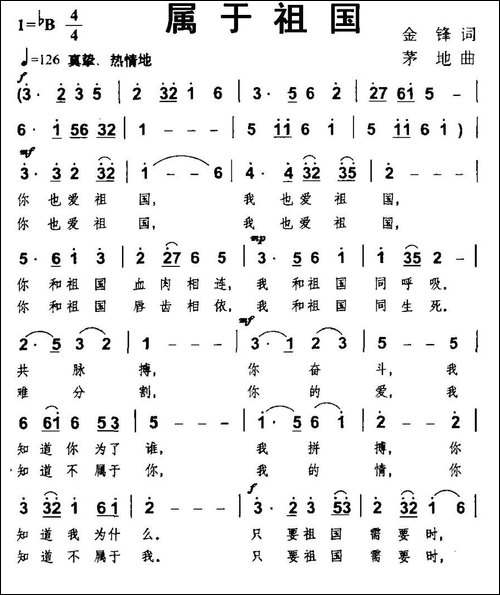 属于祖国
1=♭B 4/4
金锋 词
♩=126 真挚、热情地
茅地 曲
f
(3· 2 3 5 | 2 32 1 6 | 3· 5 6 2 | 27 61 5 - |
6· 1 56 32 | 1 - - - | 5 11 6 1 | 5 11 6 1 ) |
mf
3· 3 2 32 | 1 - - 6 | 4· 4 32 35 | 2 - - - |
你也爱祖国, 我也爱祖国,
你也爱祖国, 我也爱祖国,
mp
5· 6 1 3 | 2 27 6 5 | 3· 5 6 1 | 1 35 2 - |
你和祖国血肉相连, 我和祖国同呼吸。
你和祖国唇齿相依, 我和祖国同生死。
mf
2· 3 5 3 2 | 1 - - - | 3· 5 1 2 3 | 5 - - 5 |
共脉搏, 你奋斗, 我
难分割, 你的爱, 我
6 61 6 53 | 5 - - - | 1· 5 6 1 | 2 - - 2 |
知道你为了谁, 我拼搏, 你
知道不属于你, 我的情, 你
f
3 32 1 61 | 2 - - - | 3· 2 3 53 | 2 32 1 6 |
知道我为什么。 只要祖国需要时,
知道不属于我。 只要祖国需要时,